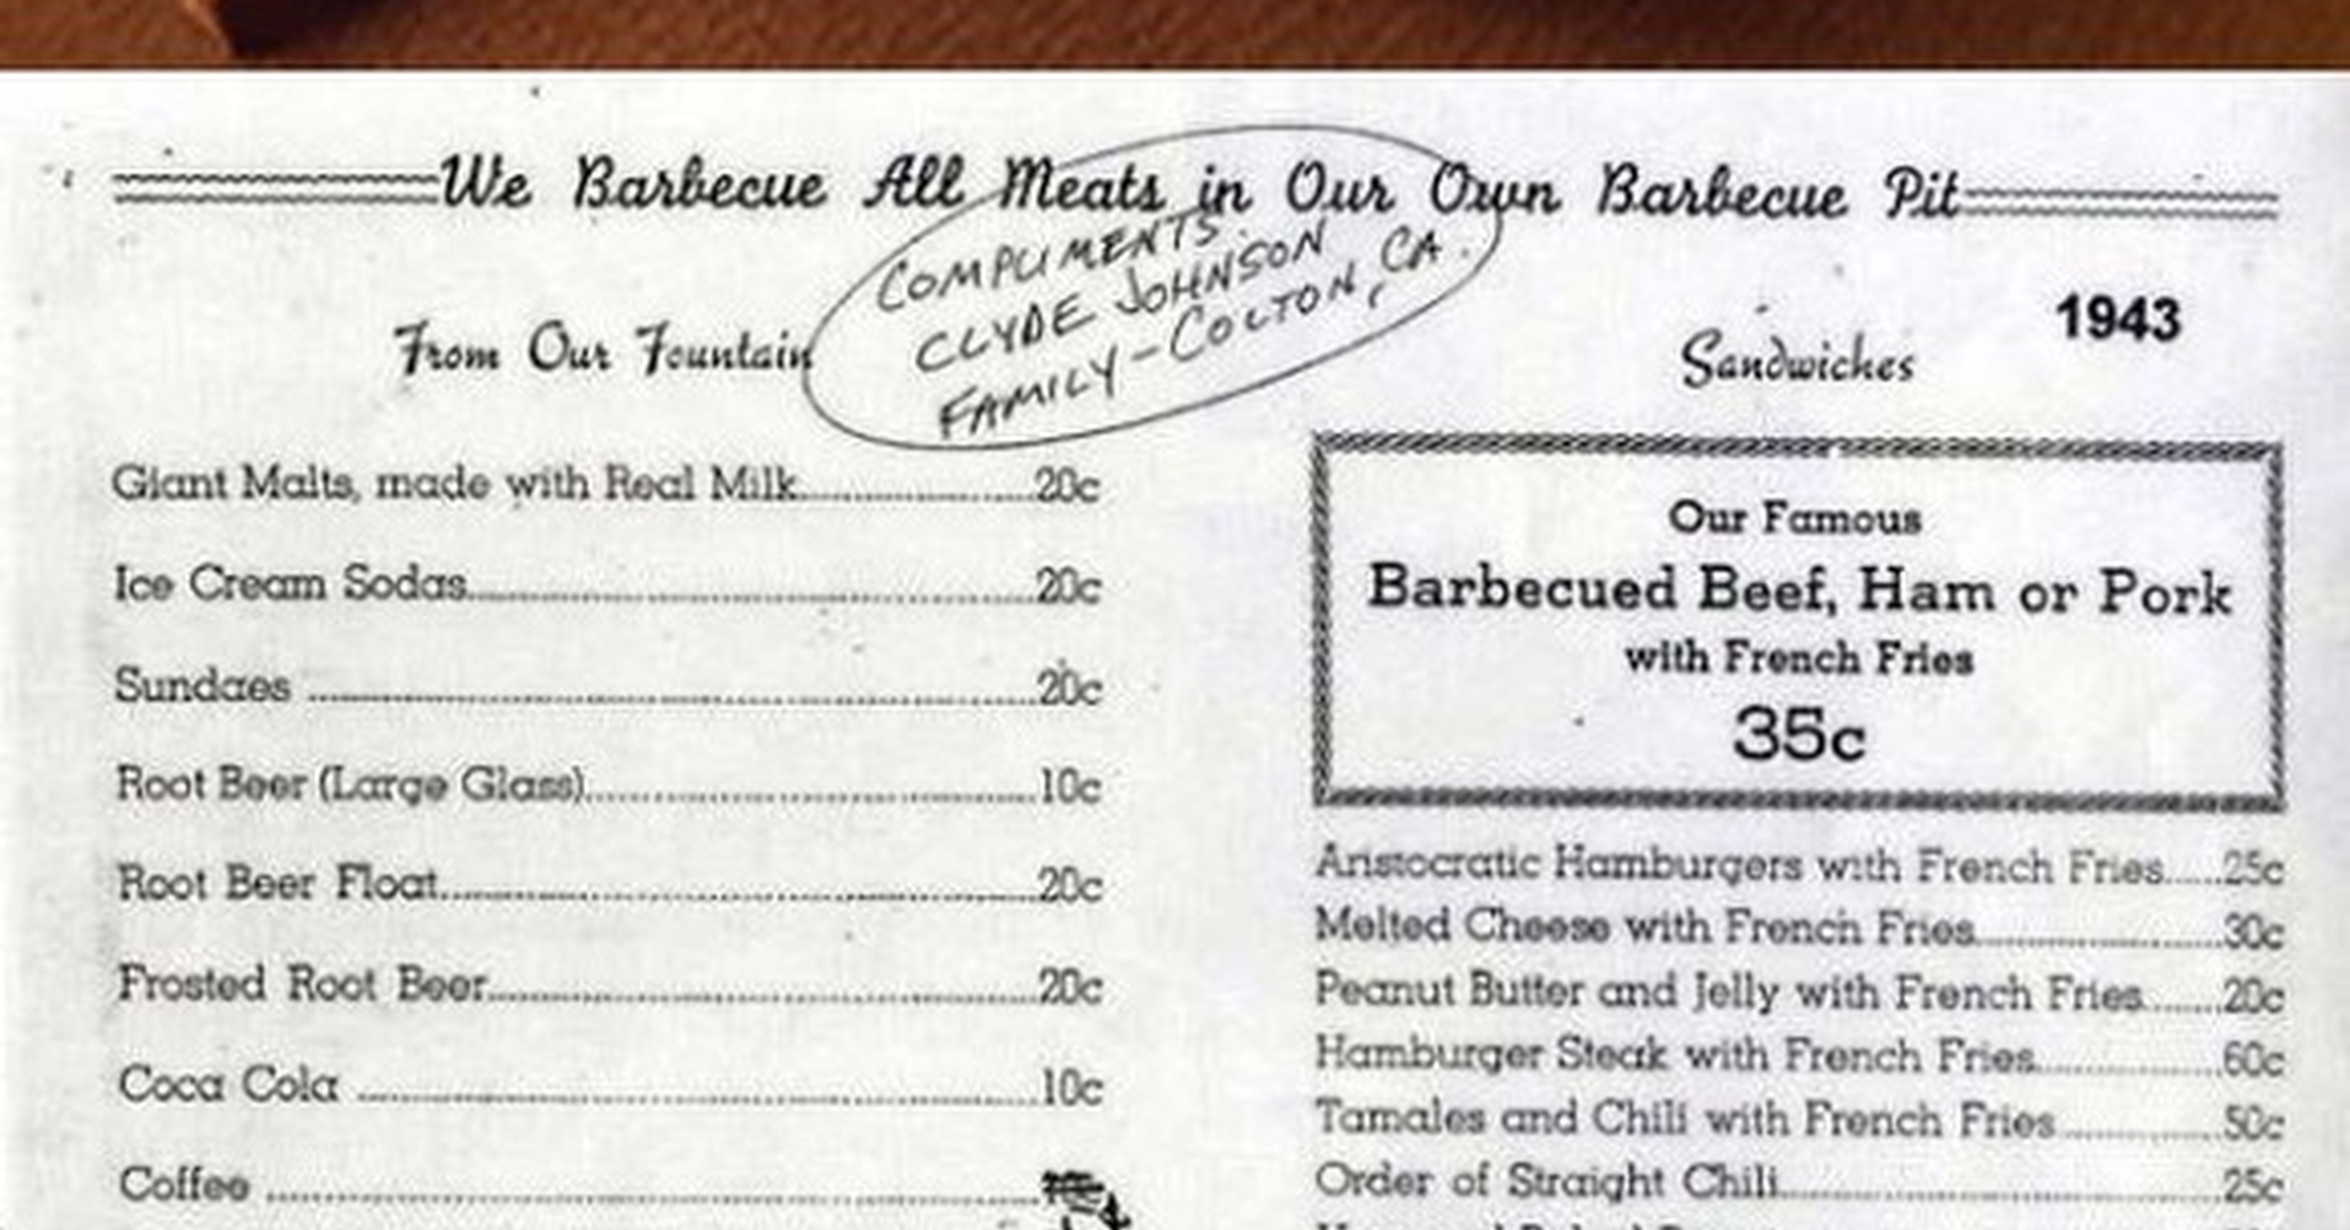 We Barbecue All Meats in Our Own Barbecue Pit
COMPLIMENTS
CLYDE JOHNSON
FAMILY - COLTON, CA.
From Our Fountain
Giant Malts, made with Real Milk 20c
Ice Cream Sodas 20c
Sundaes 20c
Root Beer (Large Glass) 10c
Root Beer Float 20c
Frosted Root Beer 20c
Coca Cola 10c
Coffee
1943
Sandwiches
Our Famous
Barbecued Beef, Ham or Pork
with French Fries
35c
Aristocratic Hamburgers with French Fries 25c
Melted Cheese with French Fries 30c
Peanut Butter and Jelly with French Fries 20c
Hamburger Steak with French Fries 60c
Tamales and Chili with French Fries 50c
Order of Straight Chili 25c